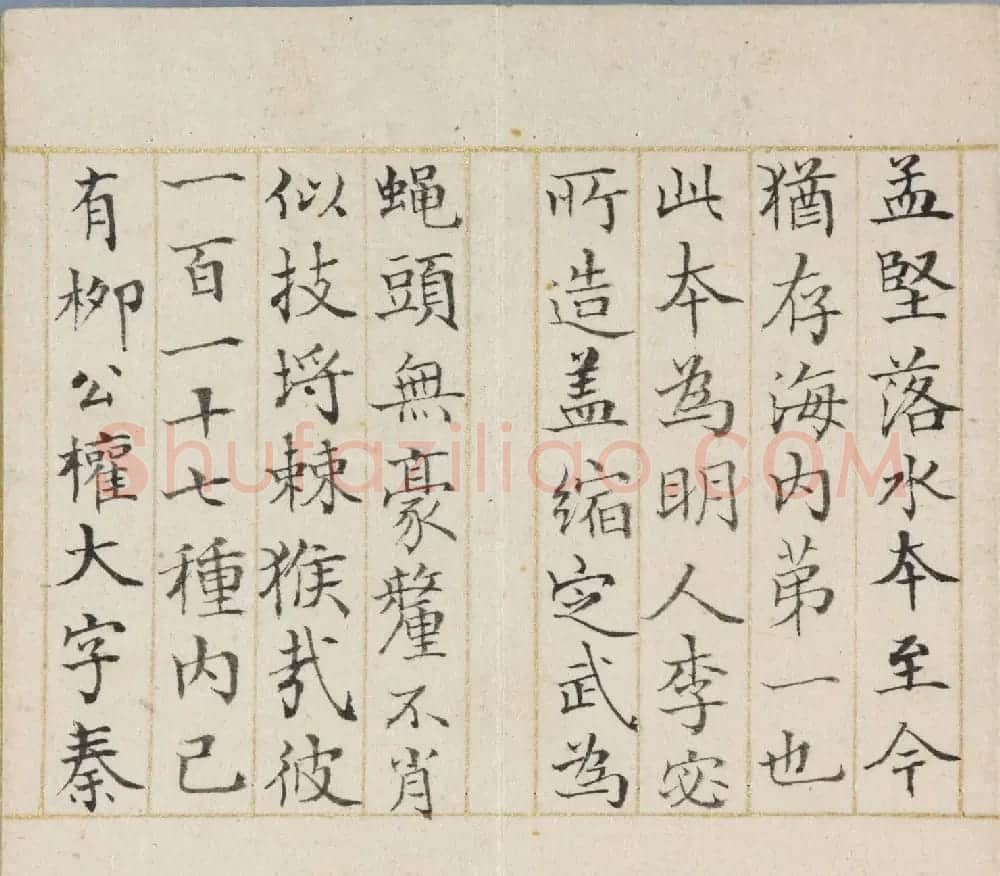 孟堅落水本至今
猶存海内苐一也
此本為明人李宓
所造盖縮定武為
蝇頭無豪釐不肖
似技埒棘猴哉彼
一百一十七種内已
有栁公權大字秦
Shufaziliao.COM